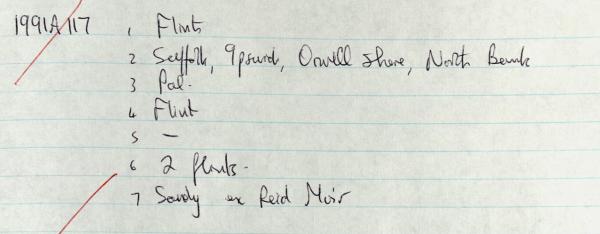 1991A117 1 Flints
2 Suffolk, Ipswich, Orwell Shore, North Bank
3 Pal.
4 Flint
5 —
6 2 flints.
7 ex Reid Moir